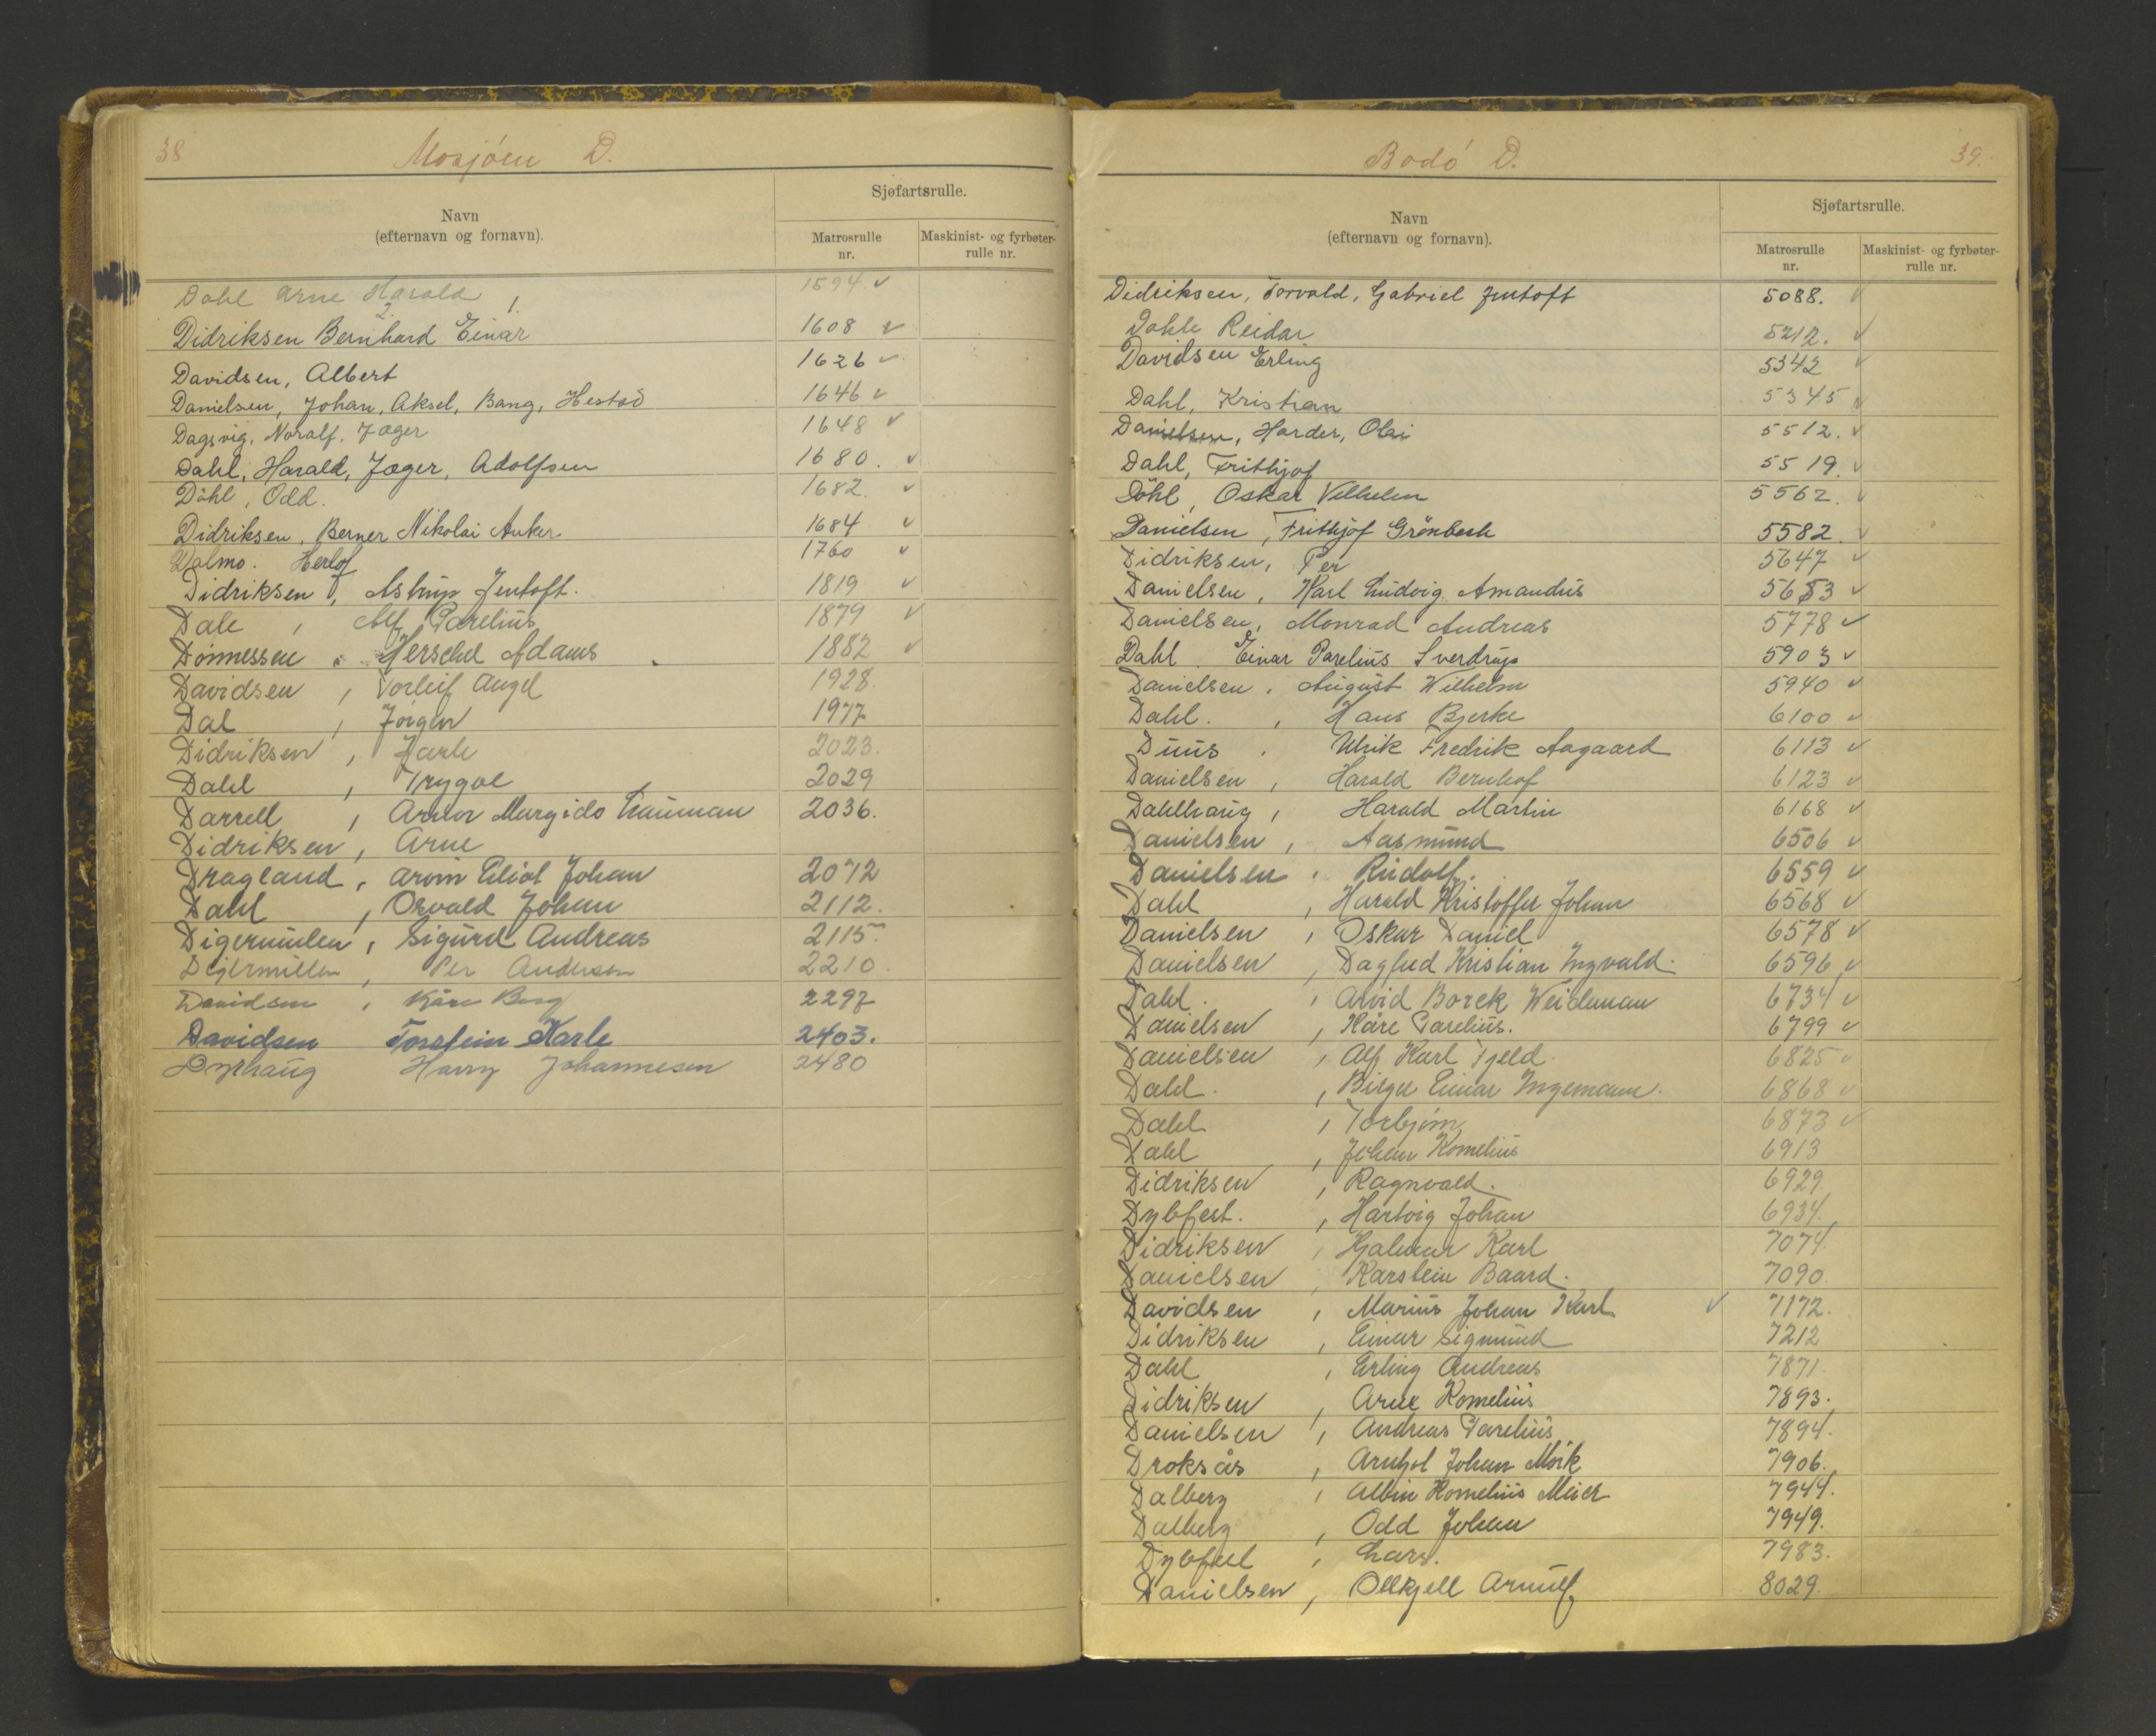 38
Mosjóen D.
Sjøfartsrulle.
Navn
(efternavn og fornavn).
Matrosrulle nr.
Maskinist- og fyrbøter-rulle nr.
Dahl Arne Harald 1594 ✓
2. 1.
Didriksen Bernhard Einar 1608 ✓
Davidsen, Albert 1626 ✓
Danielsen, Johan, Aksel, Bang, Hestad 1646 ✓
Dagsvig, Noralf, Jæger 1648 ✓
Dahl, Harald, Jæger, Adolfsen 1680. ✓
Dahl, Odd. 1682. ✓
Didriksen, Berner Nikolai Anker. 1684 ✓
Dalmo. Herlof 1760 ✓
Didriksen, Astrup Jentoft. 1819 ✓
Dale, Alf Parelius 1879 ✓
Dönnessen, Herschel Adams 1882 ✓
Davidsen, Torleif Angel 1928.
Dal, Jörgen 1977
Didriksen, Jarle 2023.
Dahl, Trygve 2029
Darrell, Lauman 2036.
Didriksen, Arne
Dragland, Arvin Johan 2072
Dahl, Osvald Johan 2112.
Digermulen, Sigurd Andreas 2115.
Digermulen, Per Andersen 2210.
Davidsen, Kåre Berg 2297
Davidsen Torstein Karle 2403.
Dyrhaug Harry Johannesen 2480
39.
Bodó D.
Sjøfartsrulle.
Navn
(efternavn og fornavn).
Matrosrulle nr.
Maskinist- og fyrbøter-rulle nr.
Didriksen, Torvald, Gabriel Jentoft 5088. ✓
Dahle Reidar 5212. ✓
Davidsen Erling 5342 ✓
Dahl, Kristian 5345 ✓
Danielsen, Harder, Olai 5512. ✓
Dahl, Frithjof 5519. ✓
Döhl, Oskar Vilhelm 5562. ✓
Danielsen, Frithjof Grönbech 5582. ✓
Didriksen, Per 5647 ✓
Danielsen, Karl Ludvig Amandus 5653 ✓
Danielsen, Monrad Andreas 5778 ✓
Dahl. Einar Parelius Sverdrup 5903 ✓
Danielsen, August Wilhelm 5940 ✓
Dahl., Hans Bjerke 6100 ✓
Duus. Ulrik Fredrik Aagaard 6113 ✓
Danielsen, Harald Bernhof 6123 ✓
Dahlhaug, Harald Martin 6168 ✓
Danielsen, Aasmund 6506 ✓
Danielsen, Rudolf. 6559 ✓
Dahl, Harald Kristoffer Johan 6568 ✓
Danielsen, Oskar Daniel 6578 ✓
Danielsen, Dagfred Kristian Ingvald. 6596 ✓
Dahl., Arvid Borck Weideman 6734 ✓
Danielsen, Kåre Parelius. 6799 ✓
Danielsen, Alf Karl Fjeld. 6825 ✓
Dahl., Birger Einar Ingemann. 6868 ✓
Dahl, Torbjörn 6873 ✓
Dahl, Johan Kornelius 6913
Didriksen, Ragnvald. 6929.
Dybfest., Hartvig Johan 6934.
Didriksen, Hjalmar Karl 7074.
Danielsen, Karstein Baard. 7090.
Davidsen, Marius Johan Karl ✓ 7172.
Didriksen, Einar Sigmund 7212
Dahl, Erling Andreas 7871.
Didriksen, Arne Kornelius 7893.
Danielsen, Andreas Parelius 7894.
Droksås, Johan Mörk 7906.
Dalberg, Albin Kornelius Meier 7944.
Dalberg, Odd Johan 7949.
Dybfest, Lars. 7983.
Danielsen, Ollkjell Arnulf 8029.